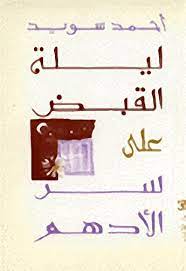 أحمد سويد
ليلة
القبض
على
سر
الأدهم